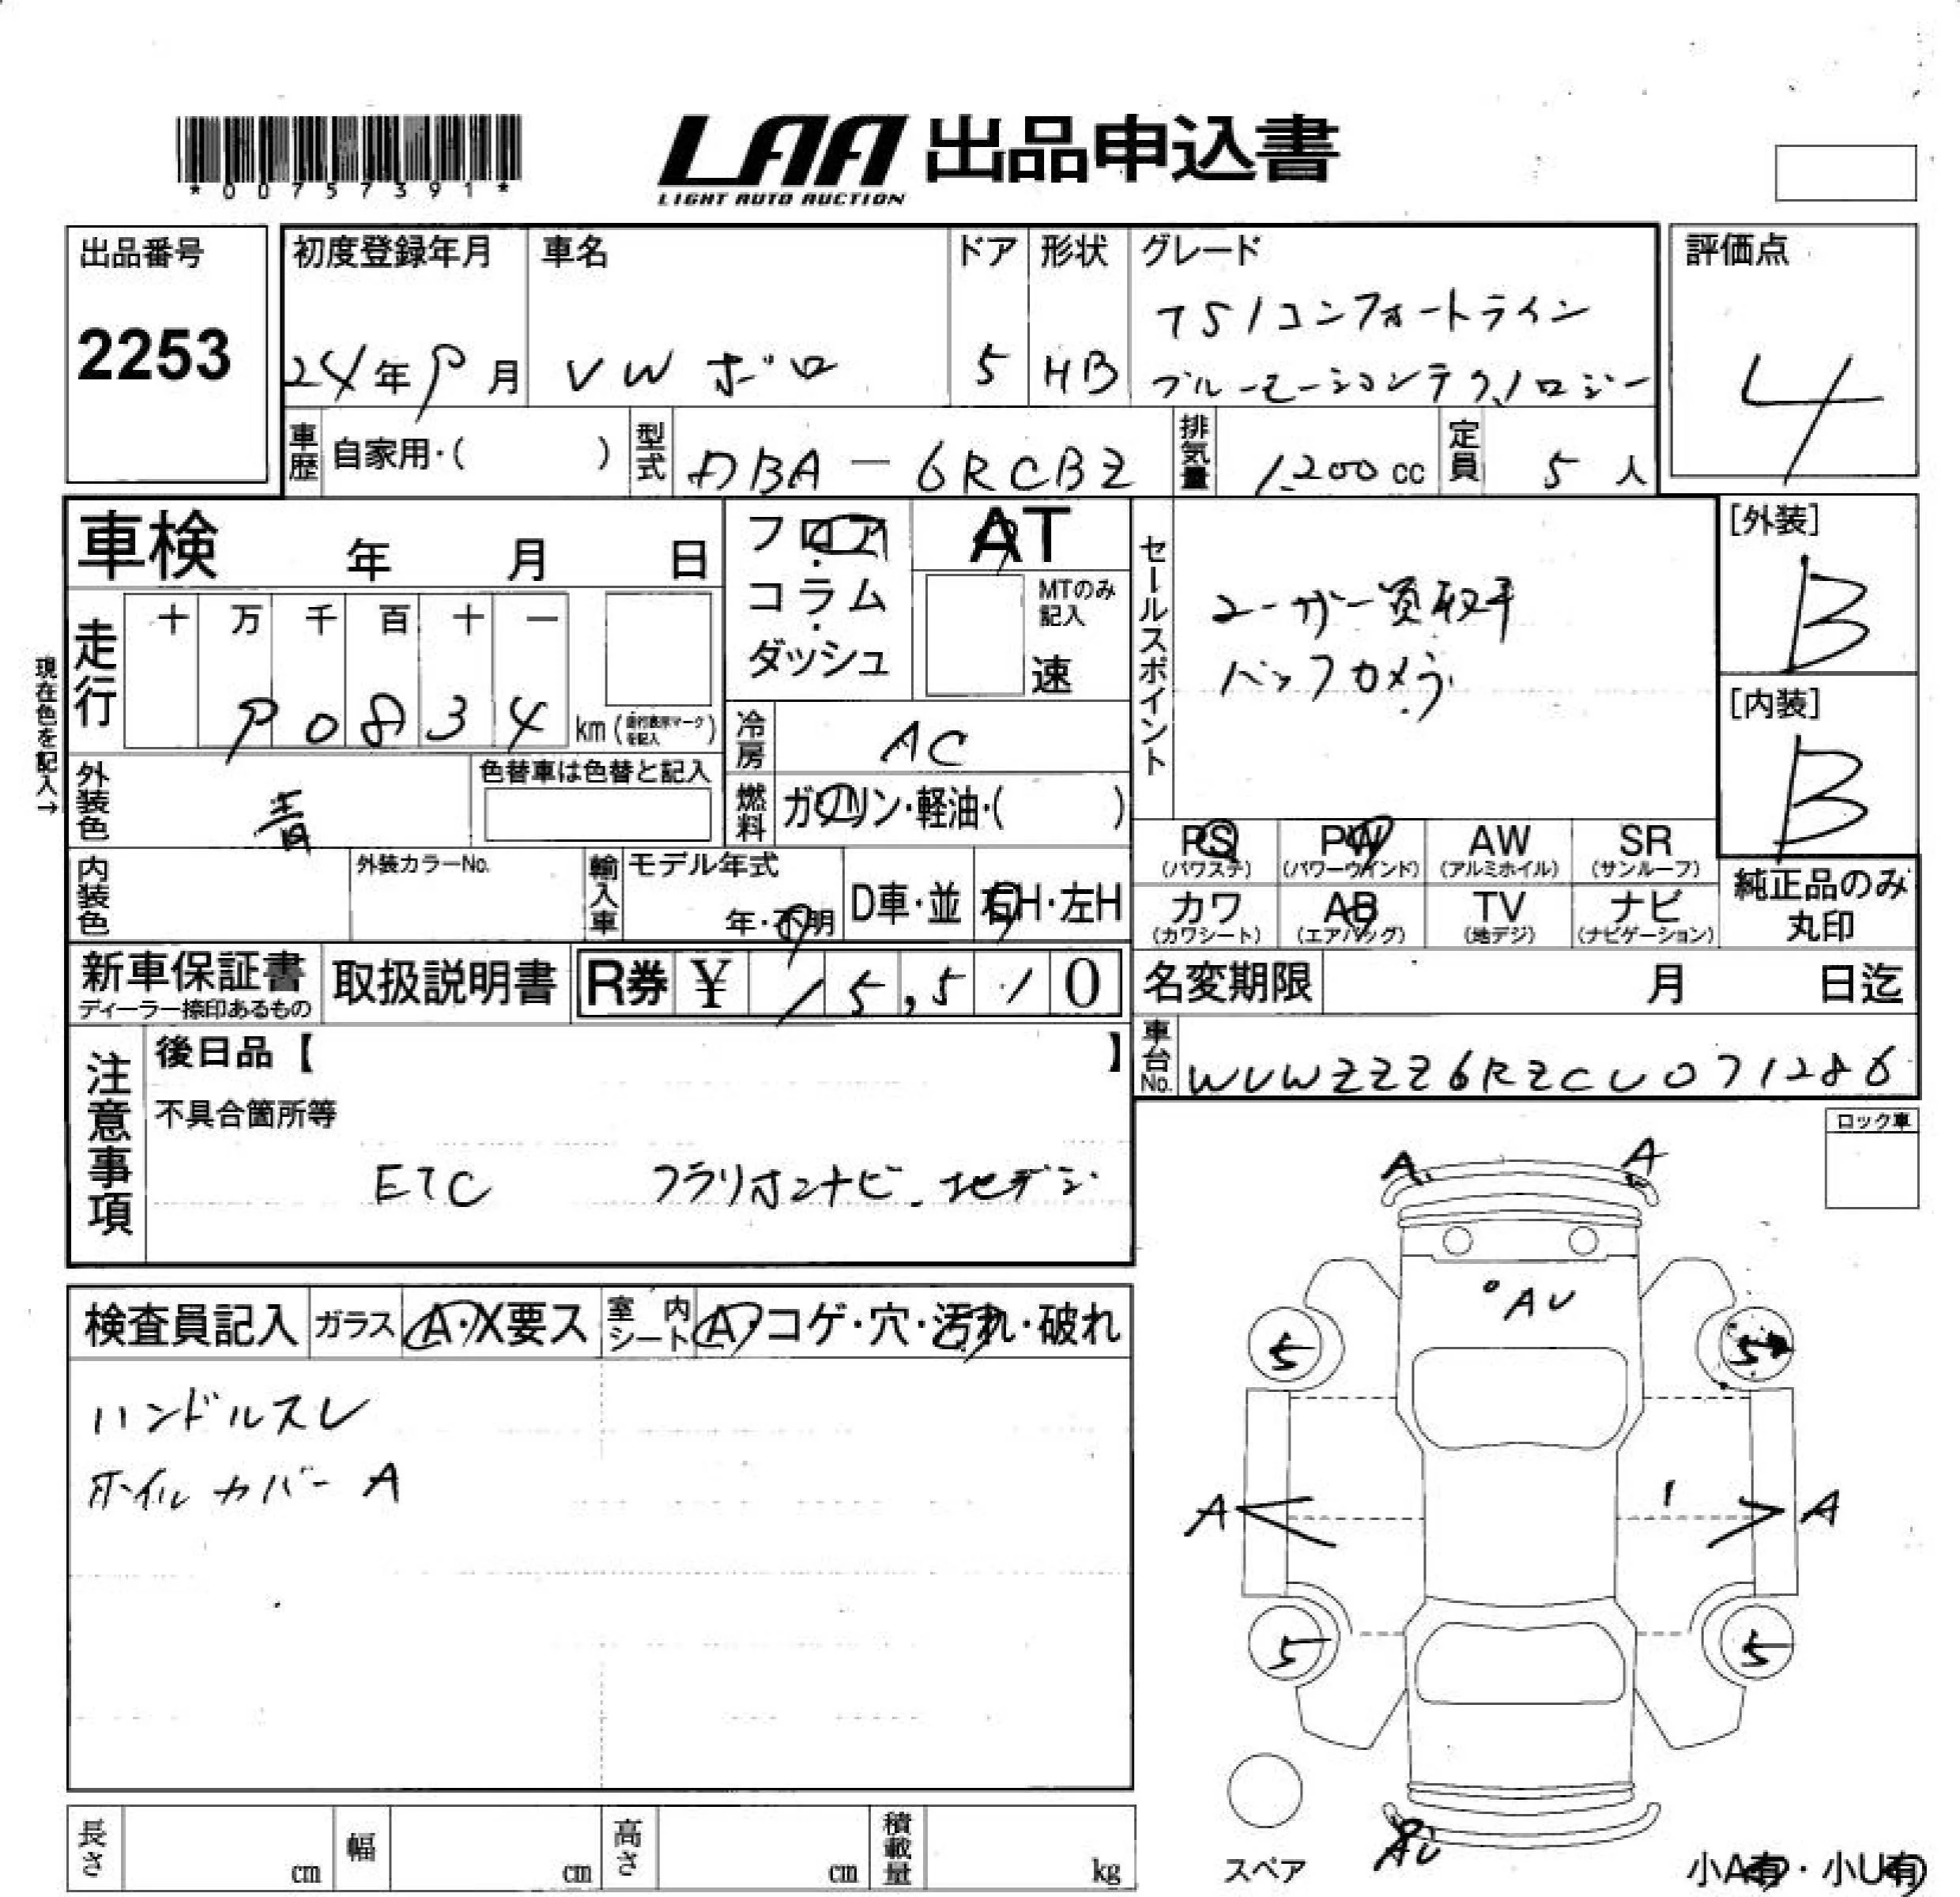 *00757391*
LAA 出品申込書
LIGHT AUTO AUCTION
出品番号
2253
初度登録年月
24年9月
車名
VW ポロ
ドア
5
形状
HB
グレード
TSIコンフォートライン
ブルーモーションテクノロジー
評価点
4
車歴
自家用・( )
型式
DBA-6RCBZ
排気量
1,200cc
定員
5人
車検 年 月 日
フロア・
コラム・
ダッシュ
AT
MTのみ
記入
速
セールスポイント
ユーザー買取車
バックカメラ
[外装]
B
[内装]
B
現在色を記入→
走行
十 万 千 百 十 一
9 0 8 3 4 km
冷房
AC
外装色
青
色替車は色替と記入
燃料
ガソリン・軽油・( )
内装色
外装カラーNo.
輸入車
モデル年式
年・不明
D車・並
右H・左H
PS
(パワステ)
PW
(パワーウインド)
AW
(アルミホイル)
SR
(サンルーフ)
カワ
(カワシート)
AB
(エアバッグ)
TV
(地デジ)
ナビ
(ナビゲーション)
純正品のみ
丸印
新車保証書
ディーラー捺印あるもの
取扱説明書
R券 ¥ 15,510
名変期限 月 日迄
車台No.
WVWZZZ6RZCU071286
注意事項
後日品【 】
不具合箇所等
ETC クラリオンナビ.地デジ
ロック車
検査員記入
ガラス
A・X要ス
室内シート
A・コゲ・穴・汚れ・破れ
ハンドルスレ
ホイルカバーA
A A
AU
5 5
A A
5 5
スペア
AU
小A有・小U有
長さ cm
幅 cm
高さ cm
積載量 kg